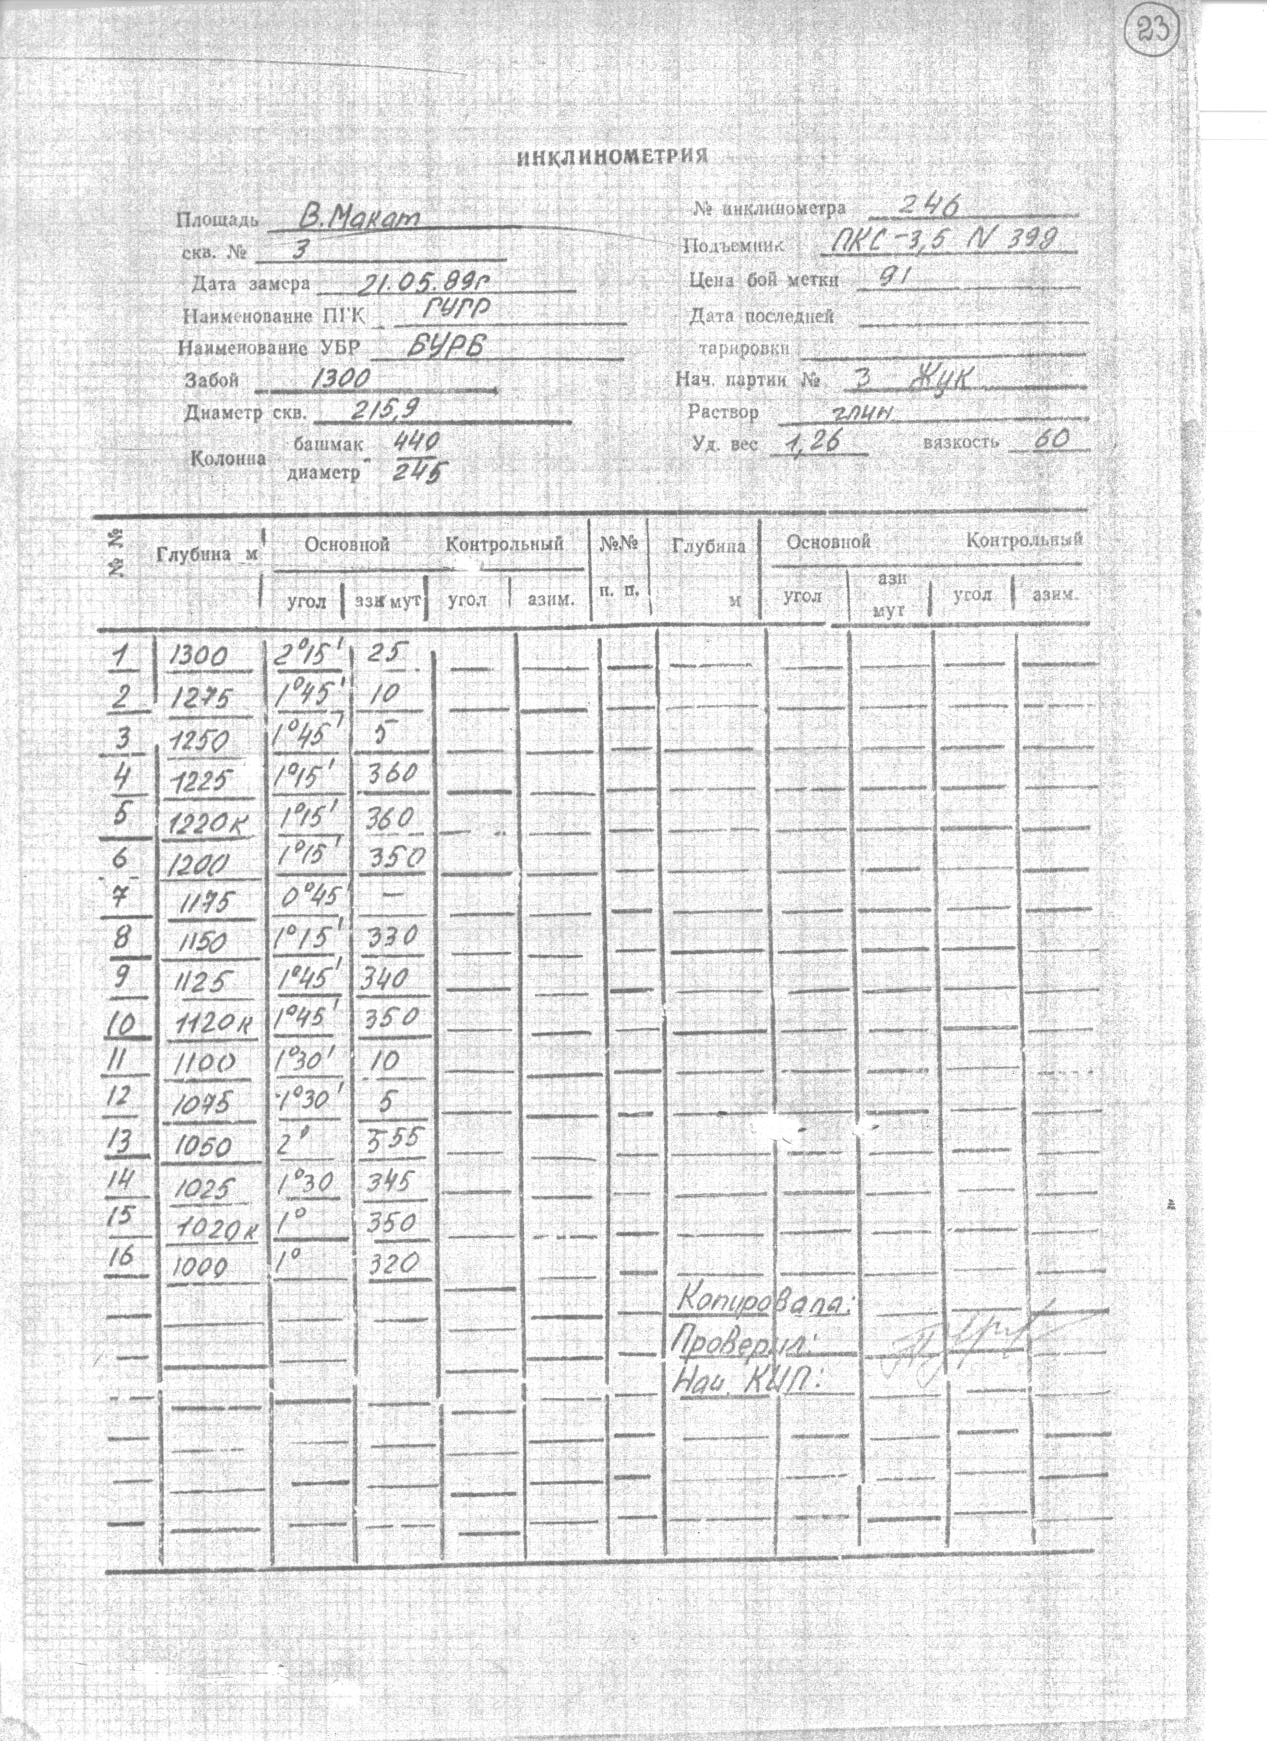 23
ИНКЛИНОМЕТРИЯ
Площадь В.Макат
скв. № 3
Дата замера 21.05.89г
Наименование ПГК ГУГР
Наименование УБР БУРБ
Забой 1300
Диаметр скв. 215,9
Колонна башмак 440
диаметр 245
№ инклинометра 246
Подъемник ПКС-3,5 N 399
Цена бой метки 91
Дата последней
тарировки
Нач. партии № 3 Жук
Раствор глин.
Уд. вес 1,26 вязкость 60
№ № Глубина м Основной Контрольный №№ п. п. Глубина м Основной Контрольный
угол азимут угол азим. угол ази мут угол азим.
1 1300 2°15' 25
2 1275 1°45' 10
3 1250 1°45' 5
4 1225 1°15' 360
5 1220к 1°15' 360
6 1200 1°15' 350
7 1175 0°45' —
8 1150 1°15' 330
9 1125 1°45' 340
10 1120к 1°45' 350
11 1100 1°30' 10
12 1075 1°30' 5
13 1050 2' 355
14 1025 1°30 345
15 1020к 1° 350
16 1000 1° 320
Копировала:
Проверил:
Нач. КИП: